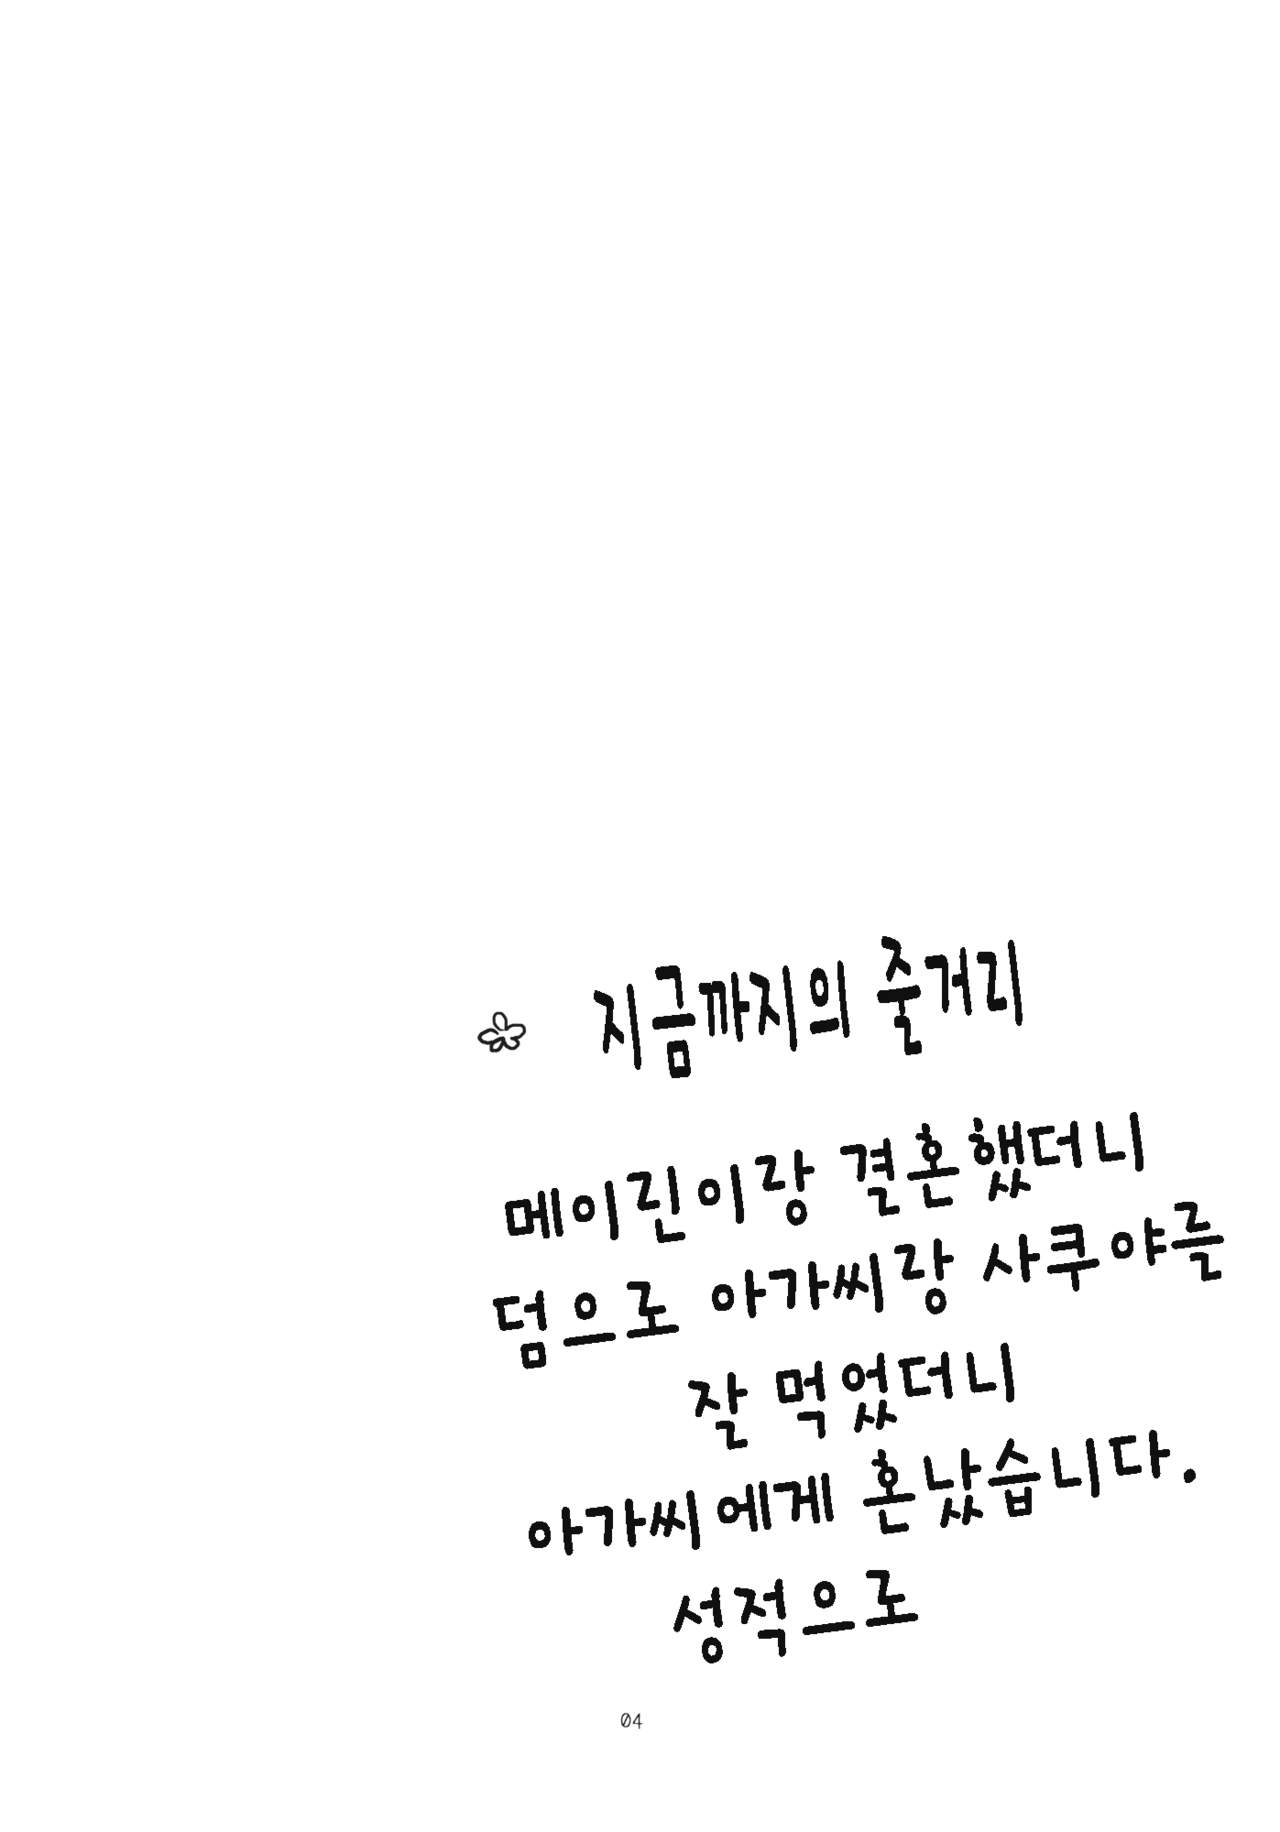 지금까지의 줄거리
메이린이랑 결혼했더니
덤으로 아가씨랑 사쿠야를
잘 먹었더니
아가씨에게 혼났습니다.
성적으로
04